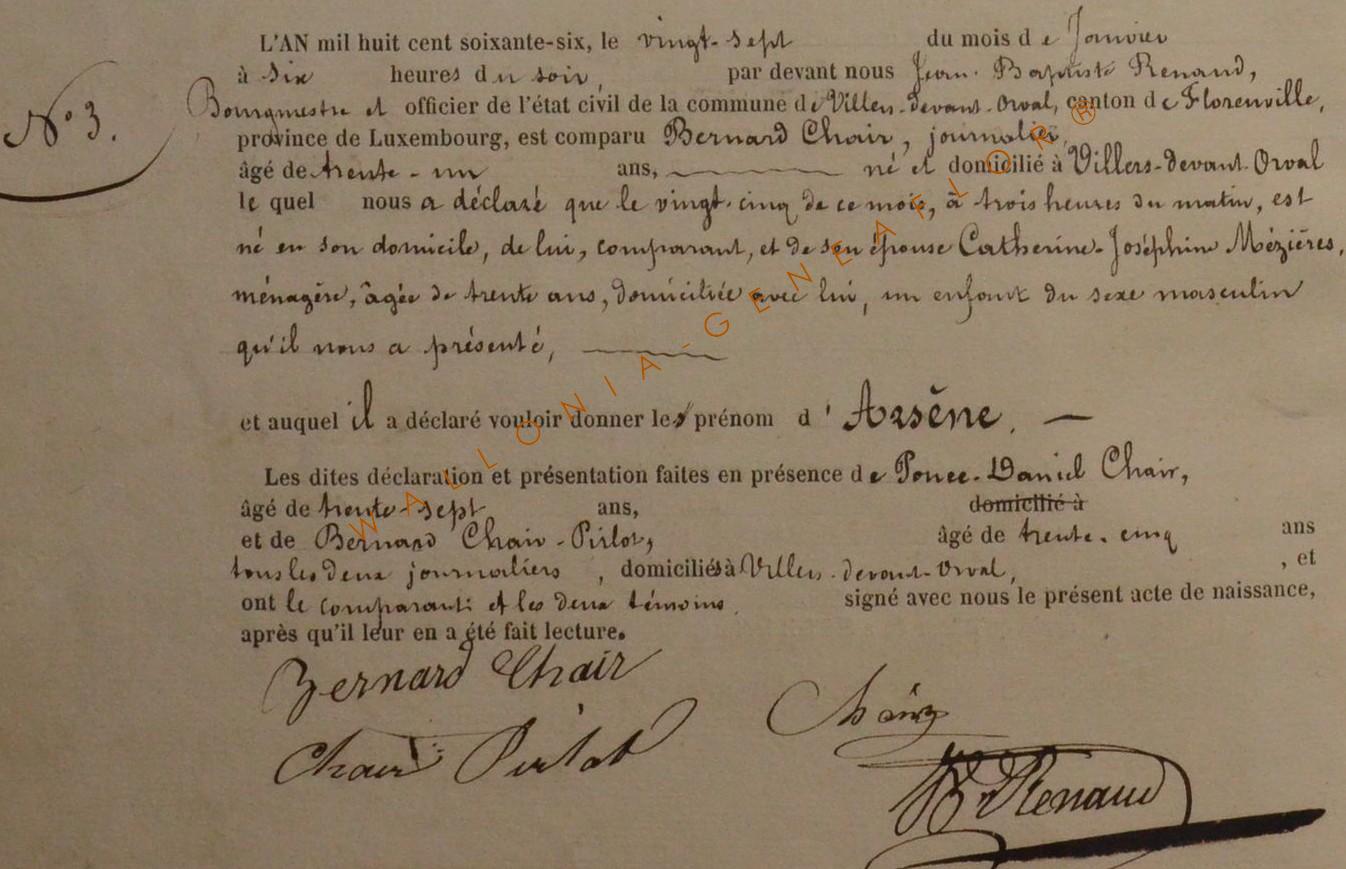 L'AN mil huit cent soixante-six, le vingt-sept du mois de Janvier
à six heures du soir, par devant nous Jean-Baptiste Renaud,
N° 3.
Bourgmestre et officier de l'état civil de la commune de Villers-devant-Orval, canton de Florenville,
province de Luxembourg, est comparu Bernard Chair, journalier,
âgé de trente-un ans, né et domicilié à Villers-devant-Orval
le quel nous a déclaré que le vingt-cinq de ce mois, à trois heures du matin, est
né en son domicile, de lui, comparant, et de son épouse Catherine-Joséphine Mézières,
ménagère, âgée de trente ans, domiciliée avec lui, un enfant du sexe masculin
qu'il nous a présenté,
et auquel il a déclaré vouloir donner les prénom d'Arsène.
Les dites déclaration et présentation faites en présence de Ponce-Daniel Chair,
âgé de trente-sept ans, domicilié à
et de Bernard Chair-Pirlot, âgé de trente-cinq ans
tous les deux journaliers, domiciliés à Villers-devant-Orval, , et
ont le comparant et les deux témoins signé avec nous le présent acte de naissance,
après qu'il leur en a été fait lecture.
Bernard Chair
Chair Pirlot
Renaud
WALLONIA-GENEAFLOR®